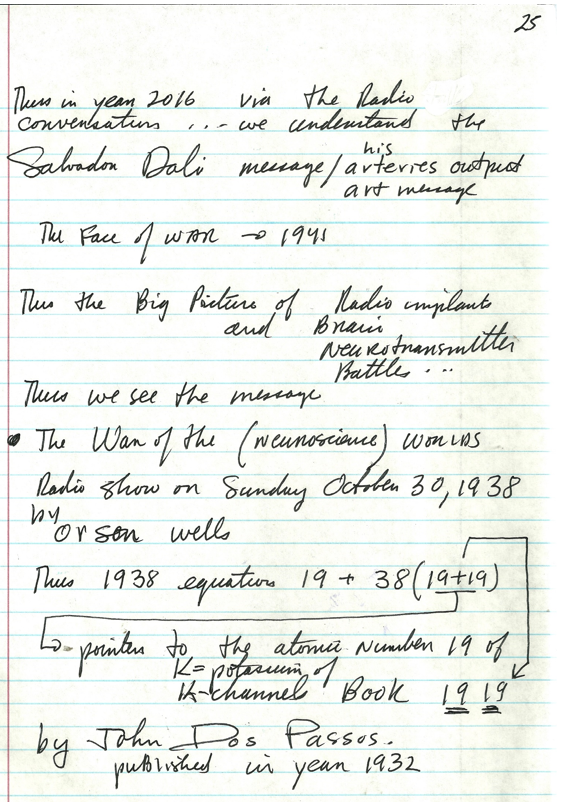 25
Thus in year 2016 via the Radio
conversation .... we understand the
his
Salvador Dali message/arteries output
art message
The Face of WAR → 1941
Thus the Big Picture of Radio implants
and Brain
Neurotransmitter
Battles ...
Thus we see the message
• The War of the (neuroscience) WORLDS
Radio show on Sunday October 30, 1938
by
Orson wells
Thus 1938 equation 19 + 38 (19+19)
→ pointers to the atomic number 19 of
K = potassium of
K-channels Book 19 19
by John Dos Passos.
published in year 1932